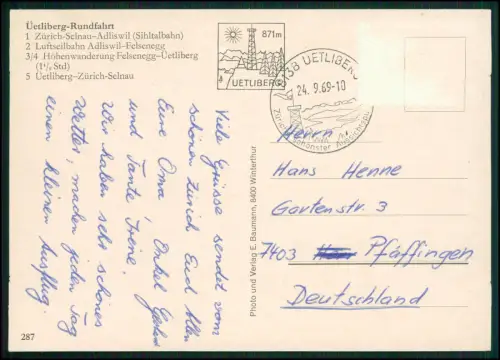 Üetliberg-Rundfahrt
1 Zürich-Selnau–Adliswil (Sihltalbahn)
2 Luftseilbahn Adliswil–Felsenegg
3/4 Höhenwanderung Felsenegg–Üetliberg
(1½ Std)
5 Üetliberg–Zürich-Selnau
871m
UETLIBERG
8138 UETLIBERG
24.9.69-10
Viele Grüsse sendet vom
schönen Zürich Euch Allen
Eure Oma, Onkel
und Tante Irene.
Wir haben sehr schönes
Wetter, machen jeden Tag
einen kleinen Ausflug.
Photo und Verlag E. Baumann, 8400 Winterthur
Herrn
Hans Henne
Gartenstr. 3
7403 Pfäffingen
Deutschland
287